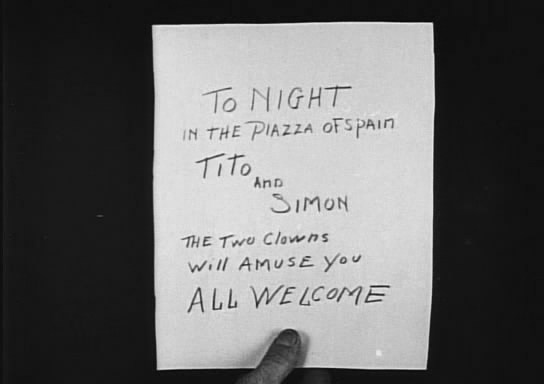 TO NIGHT
IN THE PIAZZA OF SPAIN
TITO
AND
SIMON
THE TWO Clowns
Will AMUSE You
ALL WELCOME